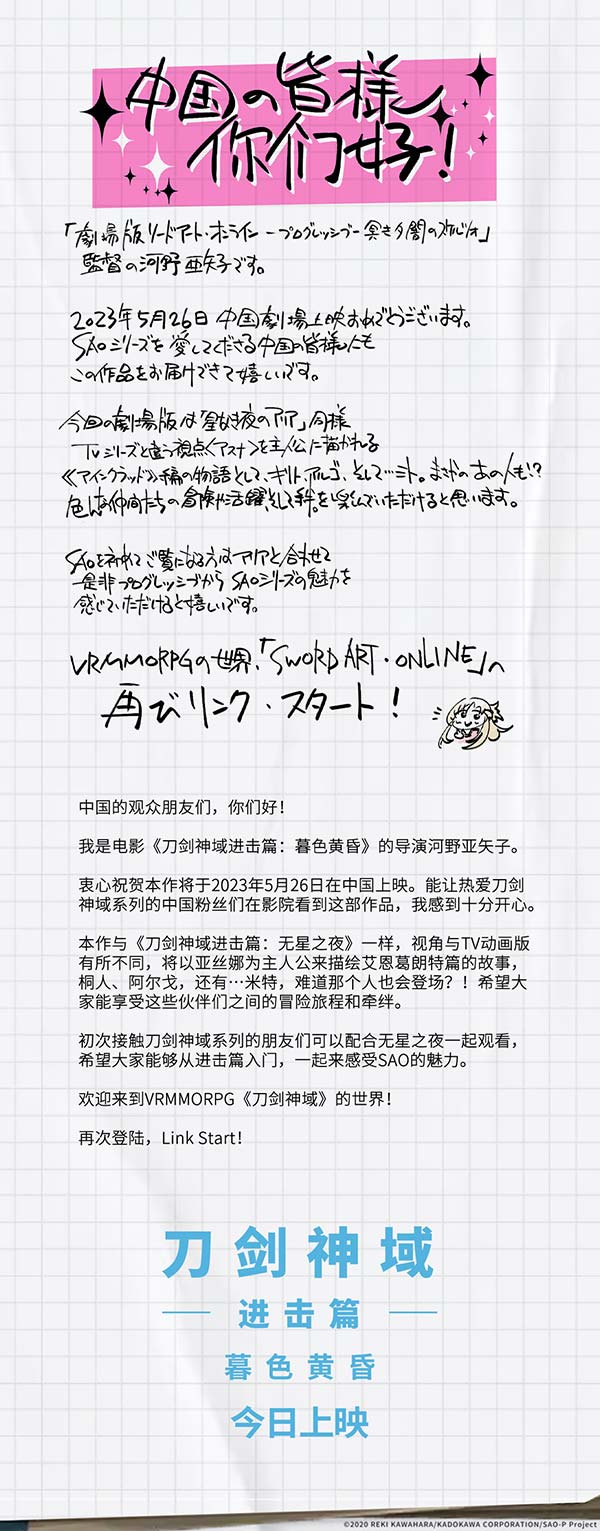 中国の皆様
你们好！
「劇場版ソードアート・オンライン －プログレッシブ－ 冥き夕闇のスケルツォ」
監督の河野亜矢子です。
2023年5月26日 中国劇場上映おめでとうございます。
SAOシリーズを愛してくださる中国の皆様にも
この作品をお届けできて嬉しいです。
今回の劇場版は「星なき夜のアリア」同様
TVシリーズと違う視点〈アスナ〉を主人公に描かれる
《アインクラッド》編の物語として、キリト、アルゴ、そして…ミト。まさかのあの人も!?
色んな仲間たちの冒険や活躍、そして絆を楽しんでいただけると思います。
SAOを初めてご覧になる方はアリアと合わせて
是非プログレッシブからSAOシリーズの魅力を
感じていただけると嬉しいです。
VRMMORPGの世界、「SWORD ART・ONLINE」へ
再びリンク・スタート！
中国的观众朋友们，你们好！
我是电影《刀剑神域进击篇：暮色黄昏》的导演河野亚矢子。
衷心祝贺本作将于2023年5月26日在中国上映。能让热爱刀剑
神域系列的中国粉丝们在影院看到这部作品，我感到十分开心。
本作与《刀剑神域进击篇：无星之夜》一样，视角与TV动画版
有所不同，将以亚丝娜为主人公来描绘艾恩葛朗特篇的故事，
桐人、阿尔戈，还有…米特，难道那个人也会登场？！希望大
家能享受这些伙伴们之间的冒险旅程和牵绊。
初次接触刀剑神域系列的朋友们可以配合无星之夜一起观看，
希望大家能够从进击篇入门，一起来感受SAO的魅力。
欢迎来到VRMMORPG《刀剑神域》的世界！
再次登陆，Link Start！
刀剑神域
进击篇
暮色黄昏
今日上映
©2020 REKI KAWAHARA/KADOKAWA CORPORATION/SAO-P Project